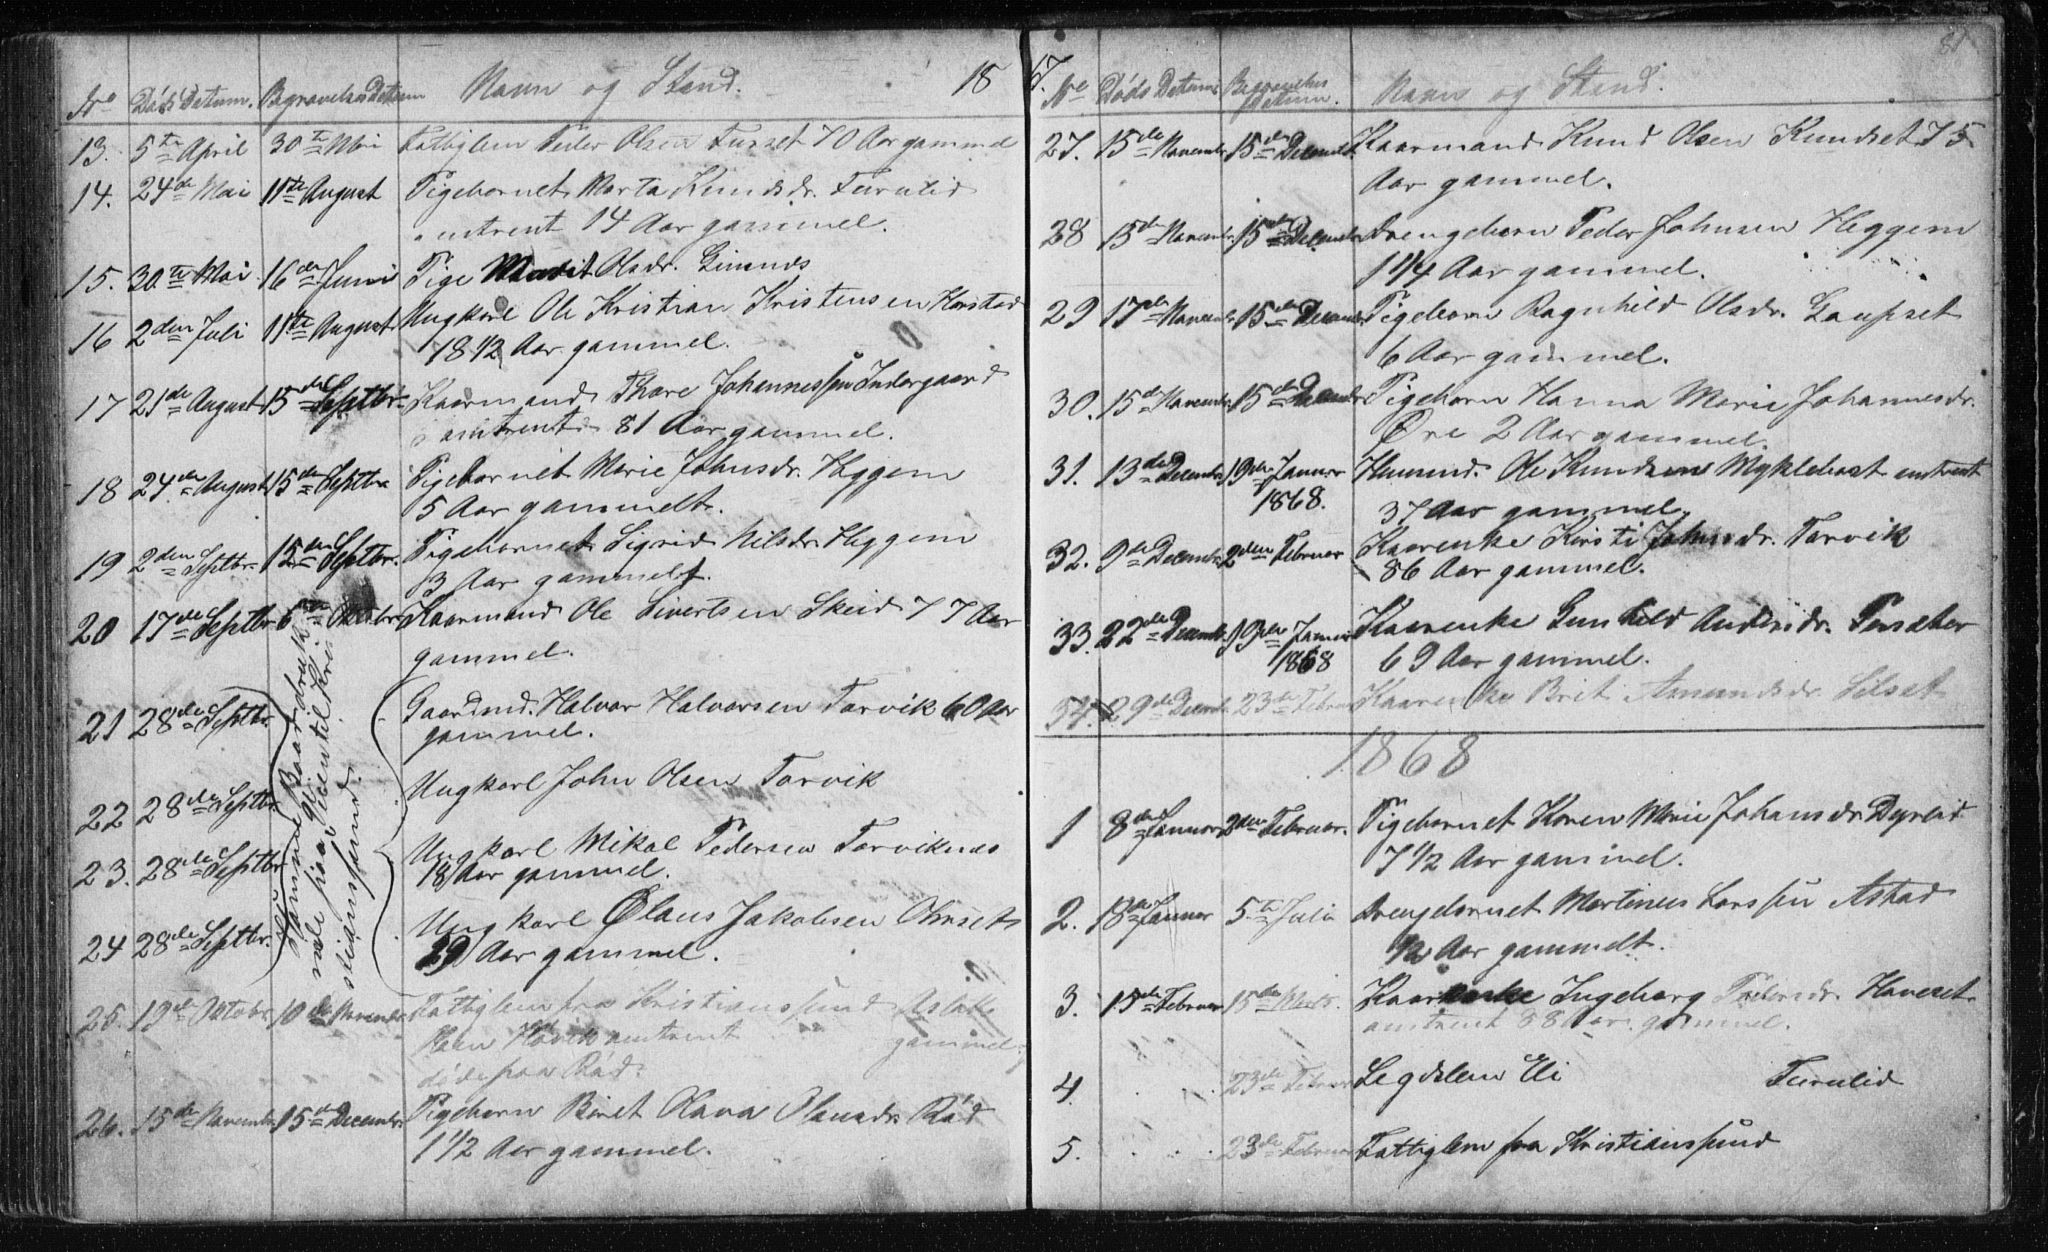 18
No Døds Datum. Begravelses Datum Navn og Stand.
13. 5te April 30te Mai Fattiglem Peder Olsen Furset 70 Aar gammel
14. 24de Mai 11te August Pigebarnet Marta Knudsdr. Furulid
omtrent 14 Aar gammel.
15. 30te Mai 16de Juni Pige Marit Olsdr. Gimnes
16 2den Juli 11te August Ungkarl Ole Kristian Kristensen Harstad
18 1/2 Aar gammel.
17 21de August 15de Septbr. Kaarmand Thore Johannessen Indergaard
omtrent 81 Aar gammel.
18 24de August 15de Septbr Pigebarnet Marie Johnsdr. Heggem
5 Aar gammelt.
19 2den Septbr. 15de Septbr. Pigebarnet Sigrid Nilsdr. Heggem
3 Aar gammelt.
20 17de Septbr 6te Oktobr Kaarmand Ole Sivertsen Skeid 77 Aar
gammel.
21 28de Septbr. Gaardmd. Halvor Halvorsen Torvik 60 Aar
gammel.
22 28de Septbr Ungkarl John Olsen Torvik
23. 28de Septbr Ungkarl Mikal Pedersen Torviknes
18 Aar gammel.
24 28de Septbr. Ungkarl Olaus Jakobsen Ornset
29 Aar gammel.
Samme Baad druk-
nede paa Veien til Kri-
stianssund.
25. 19de Oktobr. 10de Novembr Fattiglem fra Kristianssund Aslak
Hovik omtrent gammel,
døde paa Rød.
26. 15de Novembr. 15de Decembr. Pigebarn Beret Olava Olausdr. Rød
1 1/2 Aar gammel.
67.
81
No Døds Datum Begravelses Datum. Navn og Stand.
27. 15de Novembr. 15de Decembr. Kaarmand Knud Olsen Kundset 75
Aar gammel.
28 15de Novembr. 15de Decembr Drengebarn Peder Johnsen Heggem
1 1/4 Aar gammel.
29 17de Novembr. 15de Decembr Pigebarn Ragnhild Olsdr. Gaupset
6 Aar gammel.
30. 15de Novembr. 15de Decembr Pigebarn Hanna Marie Johannesdr.
Øre 2 Aar gammel.
31. 13de Decembr. 19de Januar Husmd. Ole Knudsen Myklebost omtrent
1868. 37 Aar gammel.
32. 9de Decembr. 2den Februar Kaarenke Kirsti Johnsdr. Torvik
86 Aar gammel.
33. 22de Decembr. 19de Januar Kaarenke Gunhild Andersdr.
1868 69 Aar gammel.
34. 29de Decembr. 23de Februar Kaarenke Brit Amundsdr. Silset
1868
1 8de Januar 2den Februar. Pigebarnet Karen Marie Johansdr Dyrlid
7 1/2 Aar gammel.
2. 18de Januar 5te Julii Drengebarnet Martinus Larssen Astad
1/2 Aar gammelt.
3. 15de Februar 15de Marts. Kaarenke Ingeborg Pedersdr Haveset
omtrent 88 Aar gammel.
4. . . 23de Februar Legdslem Eli Furulid
5. . . . 23de Februar Fattiglem fra Kristianssund